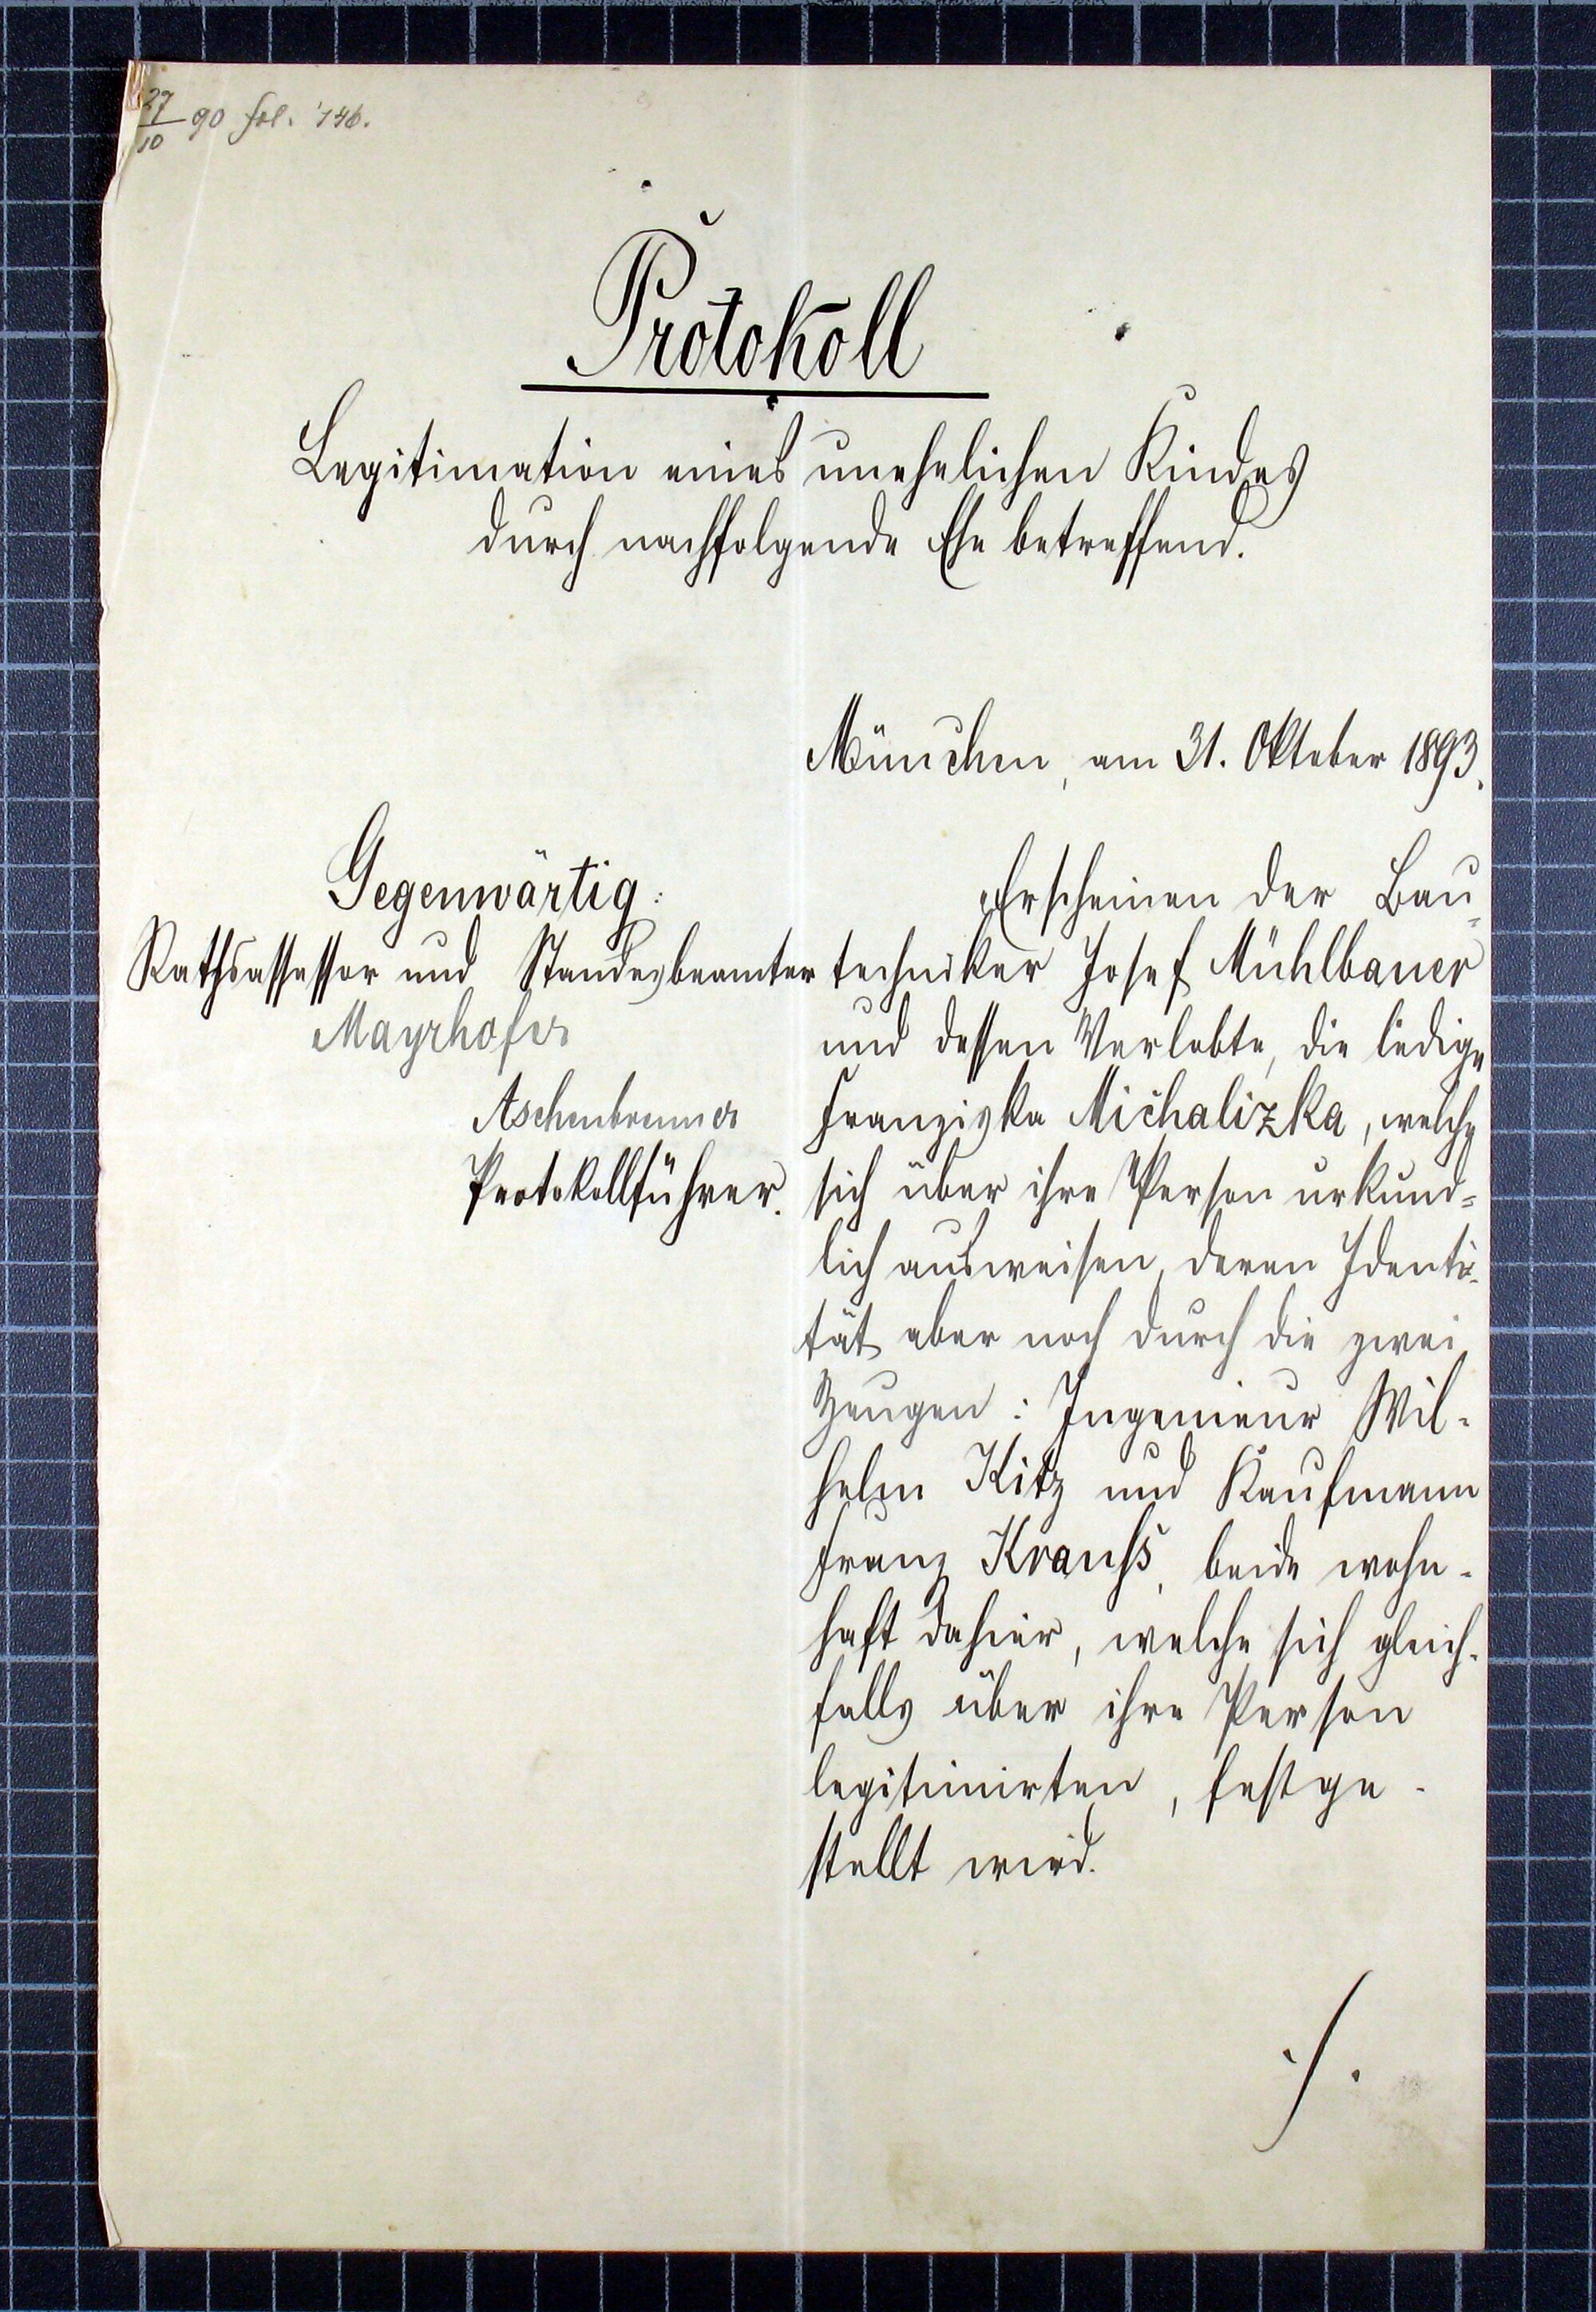 27/10 90 fol. 146.
Protokoll
Legitimation eines unehelichen Kindes
durch nachfolgende Ehe betreffend.
München, am 31. Oktober 1893.
Gegenwärtig:
Rathsassessor und Standesbeamter
Mayrhofer
Aschenbrenner
Protokollführer.
Erscheinen der Bau-
techniker Josef Mühlbauer
und dessen Verlobte, die ledige
Franziska Michalizka, welche
sich über ihre Person urkund-
lich ausweisen, deren Identi-
tät aber noch durch die zwei
Zeugen: Ingenieur Wil-
helm Kitz und Kaufmann
Franz Krauß, beide wohn-
haft dahier, welche sich gleich-
falls über ihre Person
legitimirten, festge-
stellt wird.
./.